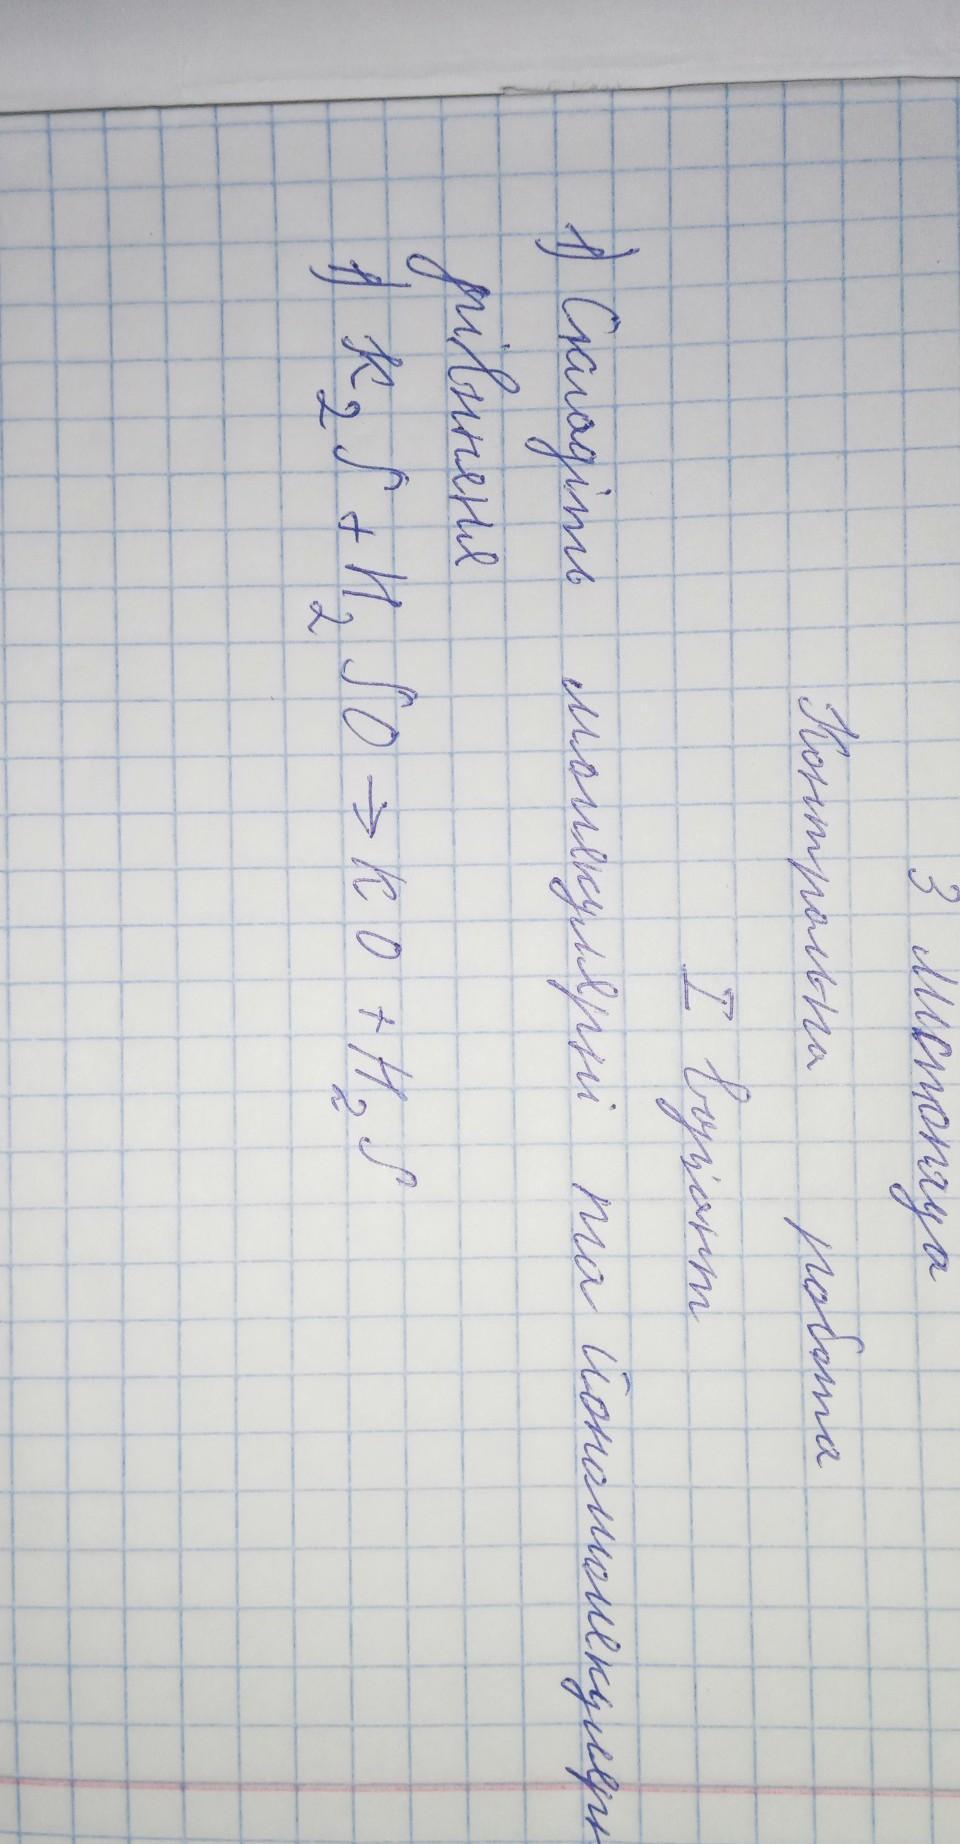 3 листопада
Контрольна робота
I варіант
1) Складіть молекулярні та йономолекулярн
рівнянення
1) K₂S + H₂SO → KO + H₂S